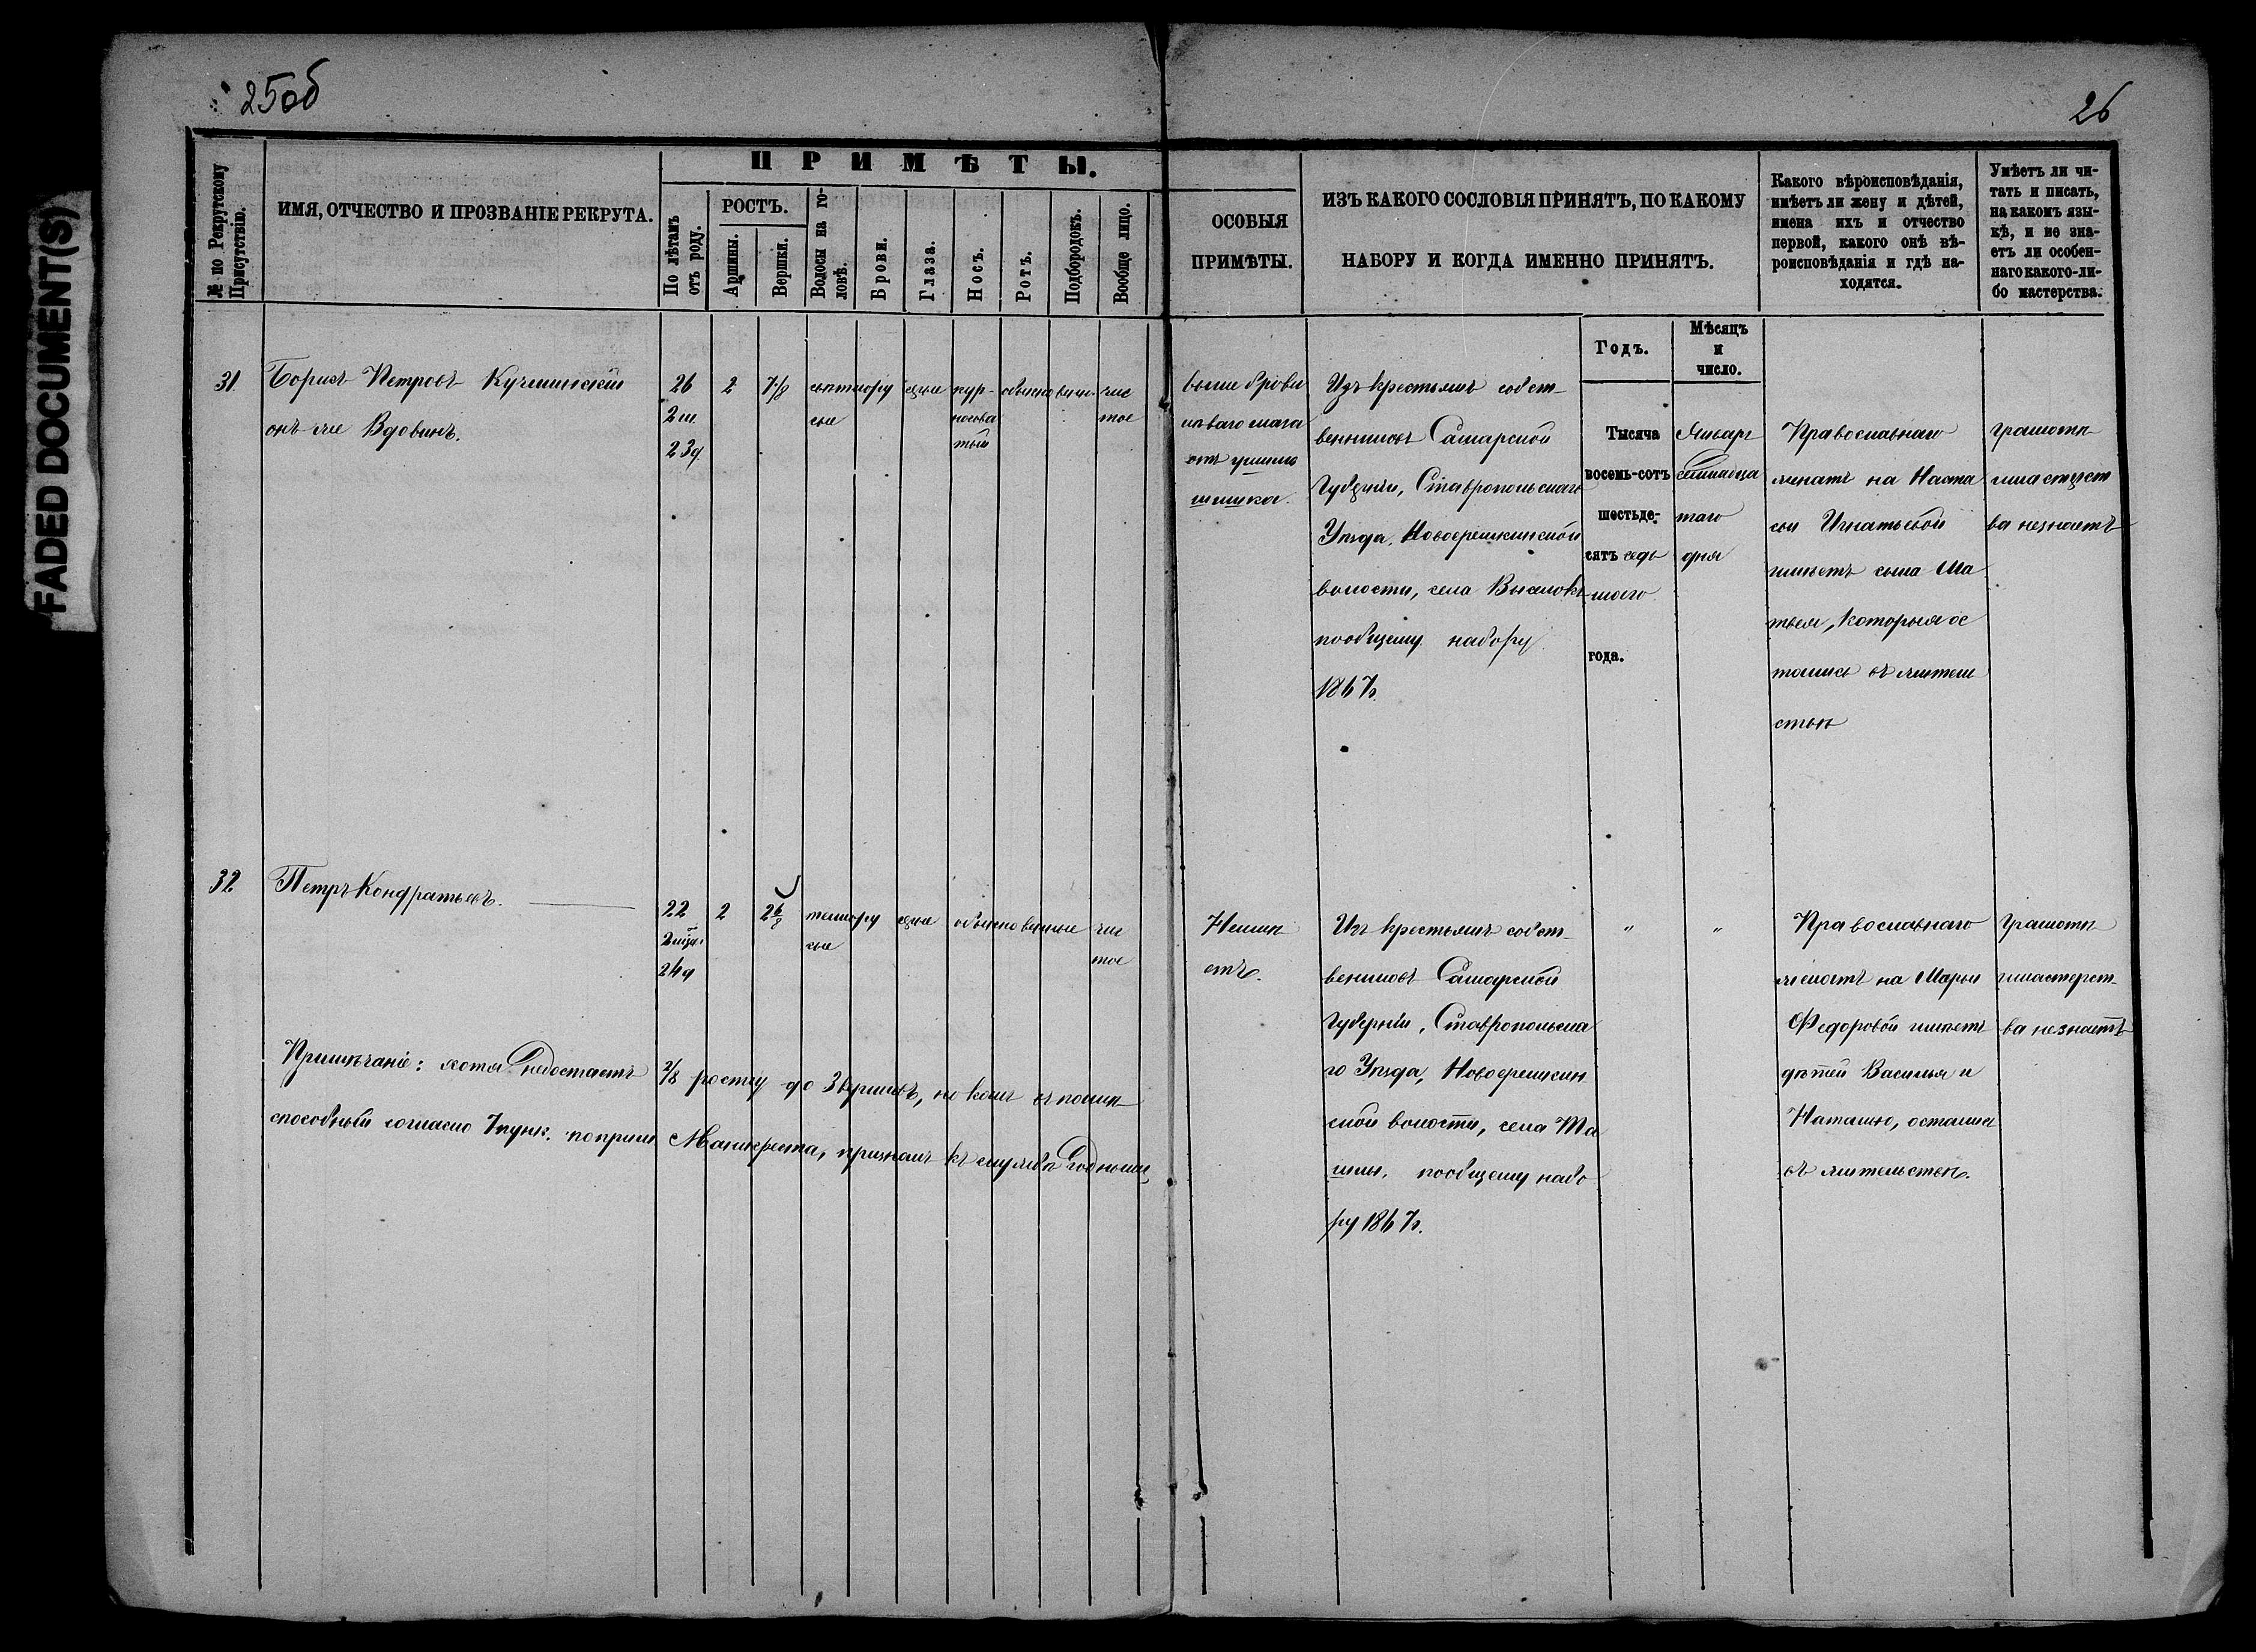 FADED DOCUMENT(S)
25об
26
ПРИМѢТЫ.
№ по Рекрутскому
Присутствію.
ИМЯ, ОТЧЕСТВО И ПРОЗВАНІЕ РЕКРУТА.
По лѣтамъ
отъ роду.
РОСТЪ.
Аршины.
Вершки.
Волосы на го-
ловѣ.
Брови.
Глаза.
Носъ.
Ротъ.
Подбородокъ.
Вообще лицо.
ОСОБЫЯ
ПРИМѢТЫ.
ИЗЪ КАКОГО СОСЛОВІЯ ПРИНЯТЪ, ПО КАКОМУ
НАБОРУ И КОГДА ИМЕННО ПРИНЯТЪ.
Какого вѣроисповѣданія,
имѣетъ ли жену и дѣтей,
имена ихъ и отчество
первой, какого онѣ вѣ-
роисповѣданія и гдѣ на-
ходятся.
Умѣетъ ли чи-
тать и писать,
на какомъ язы-
кѣ, и не зна-
етъ ли особен-
наго какого-ли-
бо мастерства.
Годъ.
Мѣсяцъ
и
число.
31.
Борисъ Петровъ
онъ же Вдовинъ.
26
2 м.
23 д.
2
7 1/8
свѣтлору
сые
сѣрые
кур-
носова
тый
обыкновен.
чис
тое
выше брови
лѣваго глаза
шишка.
Изъ крестьянъ собст-
венниковъ Самарской
Губерніи, Ставропольскаго
Уѣзда, Новоеремкинской
волости, села Выселокъ
по общему набору
1867 г.
Тысяча
восемь-сотъ
шестьде-
сятъ седь
маго
года.
Января
семнадца
таго
дня
Православнаго
женатъ на Наста
сьи Игнатьевой
имѣетъ сына Ма
твея, которыя ос
тались въ житель
ствѣ
грамотѣ
и мастерст
ва незнаетъ
32.
Петръ Кондратьевъ.
22
2 мѣс.
24 д
2
2 6/8
темнору
сые
сѣрые
обыкновенные
чис
тое
Неимѣ
етъ.
Изъ крестьянъ собст-
венниковъ Самарской
Губерніи, Ставропольска
го Уѣзда, Новоеремкин
ской волости, села Та
шлы, по общему набо
ру 1867 г.
"
"
Православнаго
женатъ на Марьи
Федоровой имѣетъ
дѣтей Василья и
Наталью, остались
въ жительствѣ.
Грамотѣ
и мастерст-
ва незнаетъ
Примѣчаніе: хотя недостаетъ 2/8 росту до 3 вершковъ, но какъ
способный согласно 7 пунк. Манифеста, признанъ къ службѣ годнымъ